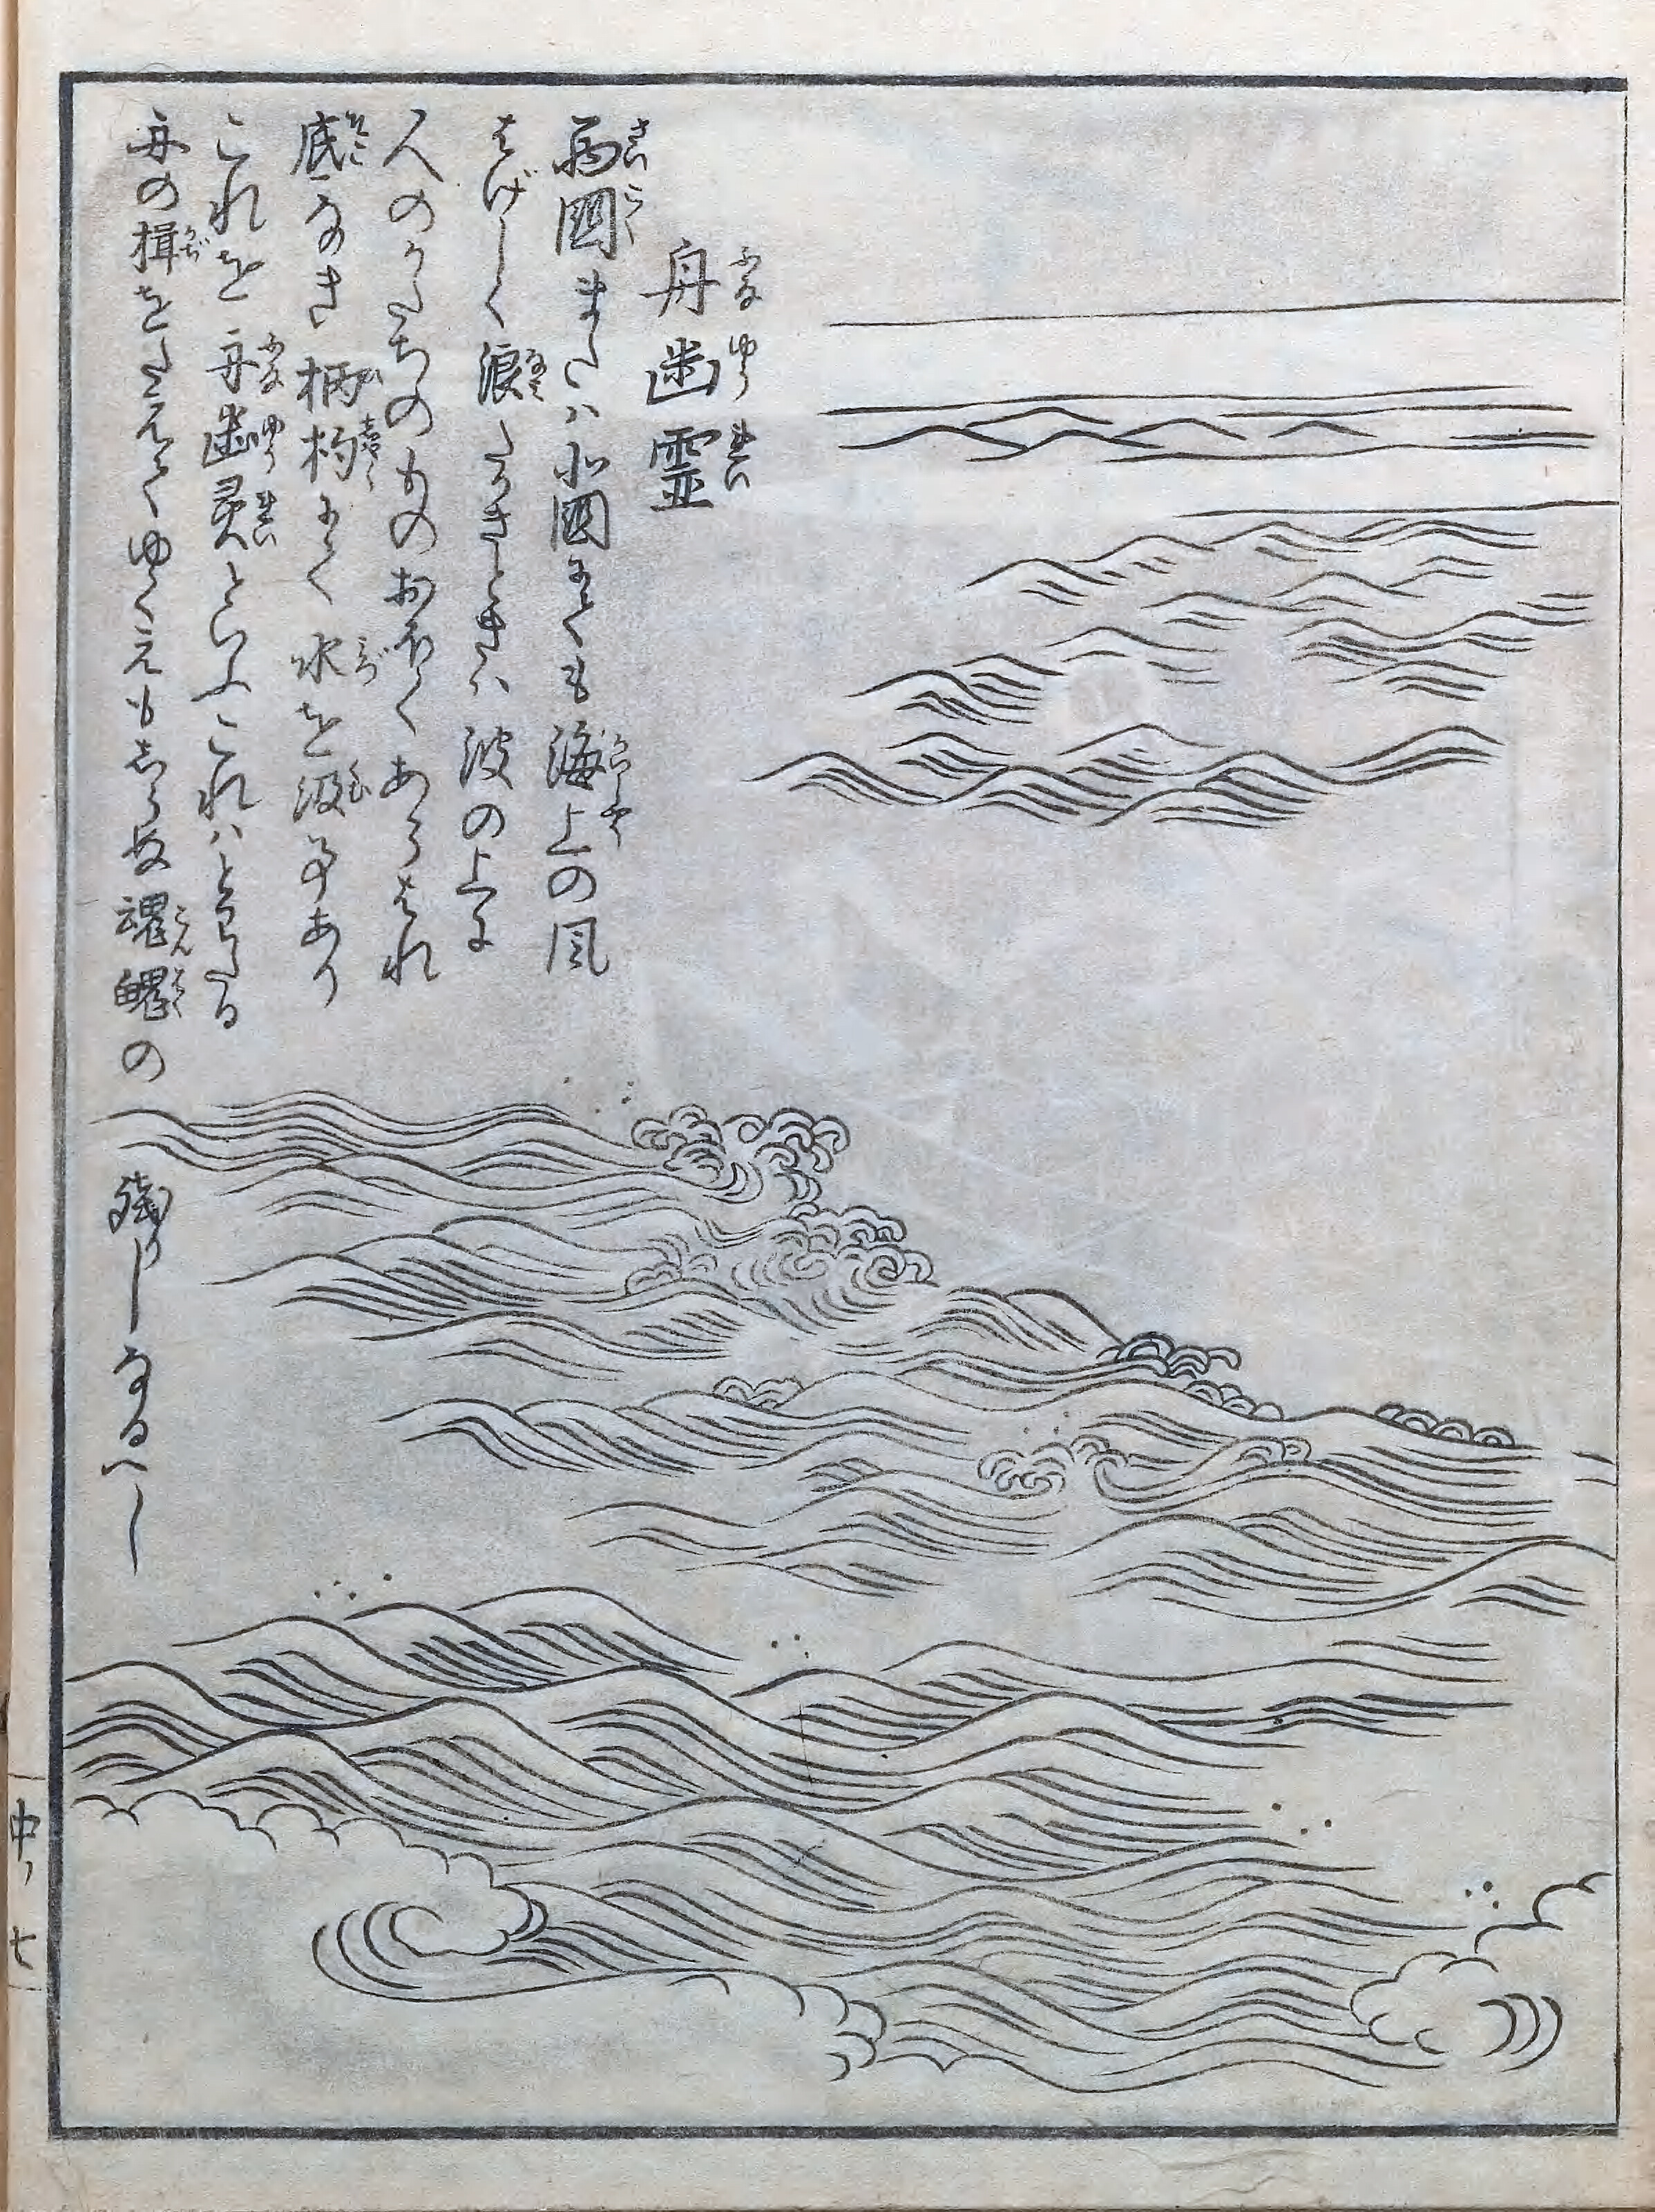 舟幽霊
西国または北国にても海上の風
はげしく浪たかきときは波の上に
人のかたちのものおほくあらはれ
底なき柄杓にて水を汲事あり
これを舟幽霊といふこれはとわたる
舟の楫をたえてゆくえもしらぬ魂魄の
残りしなるべし
中ノ七